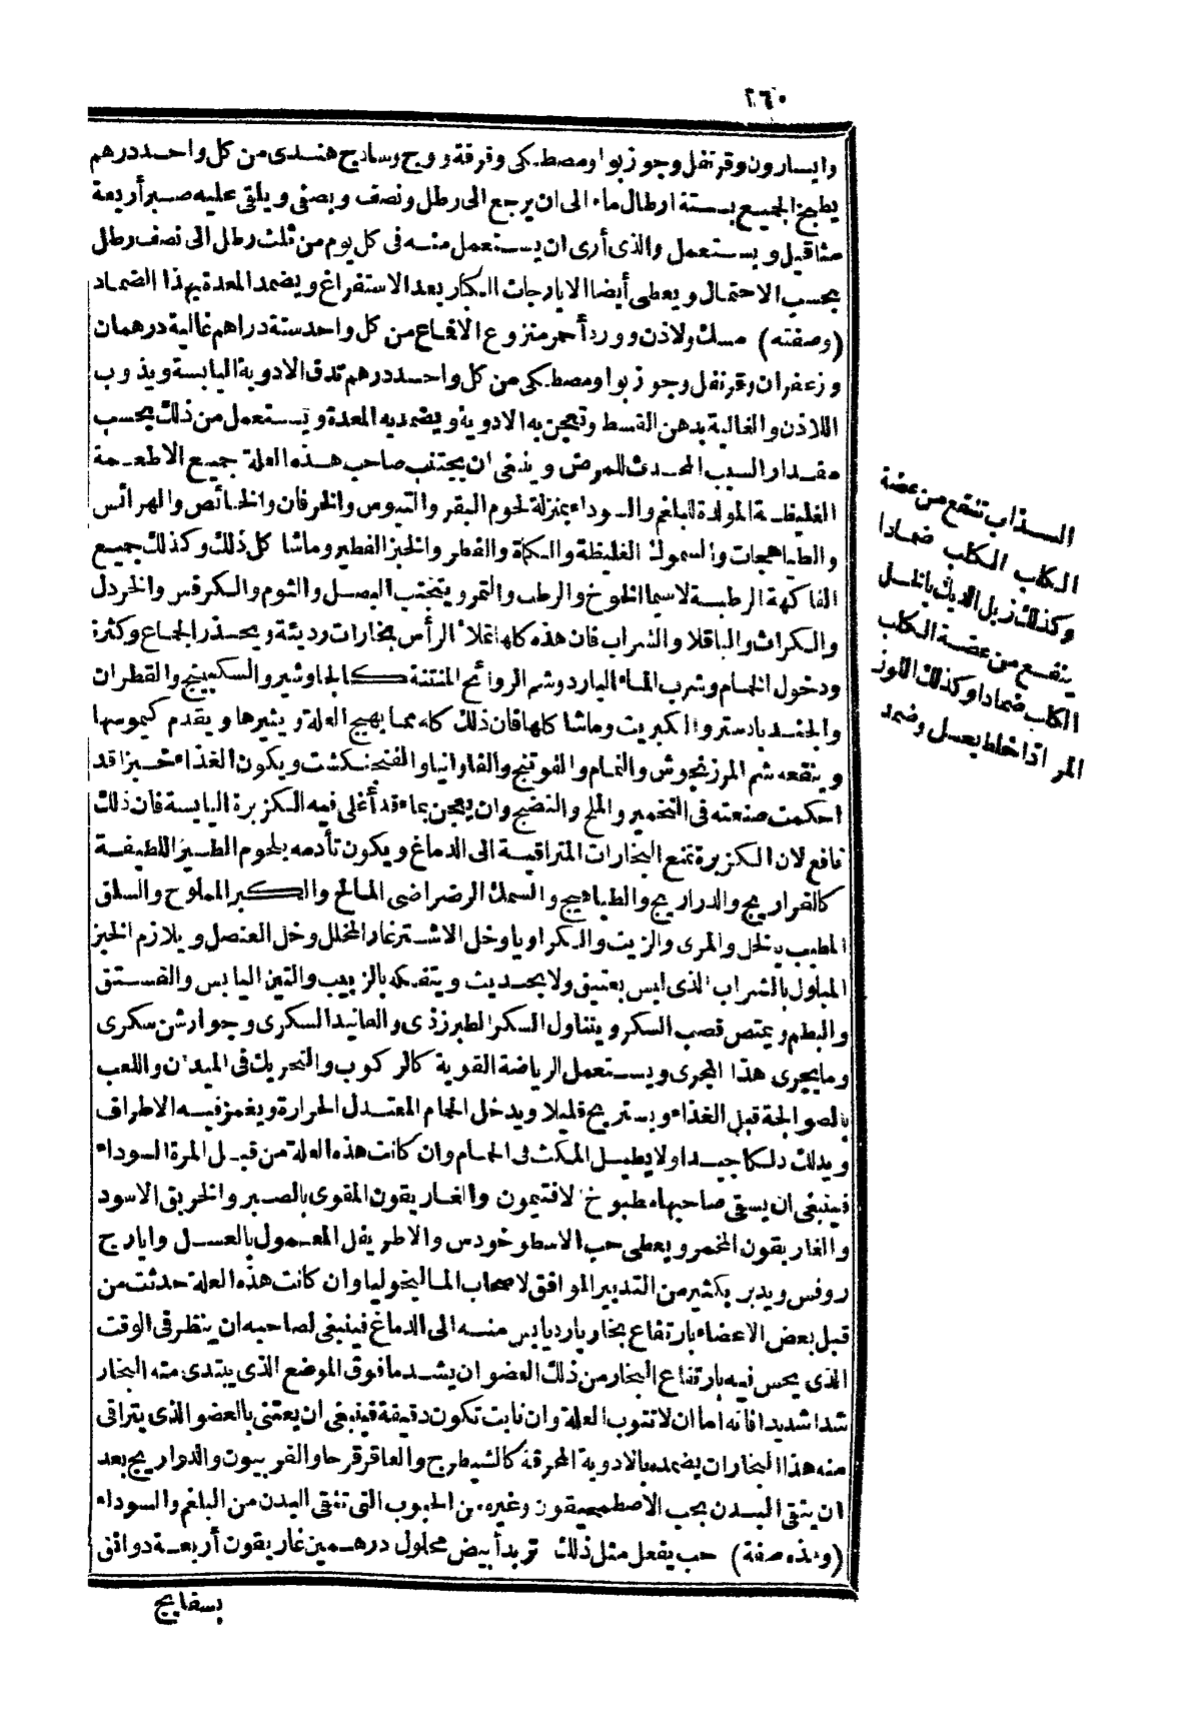 ٢٦٠
وايسارون وقرنفل وجوزبوا ومصطكى وقرفة ووج وسادج هندى من كل واحد درهم
يطبخ الجميع بستة ارطال ماء الى ان يرجع الى رطل ونصف ويصفى ويلقى عليه صبر أربعة
مثاقيل ويستعمل والذى أرى ان يستعمل منه فى كل يوم من ثلث رطل الى نصف رطل
بحسب الاحتمال ويعطى أيضا الايارجات الكبار بعد الاستفراغ ويضمد المعدة بهذا الضماد
(وصفته) مسك ولاذن وورد أحمر منزوع الاقماع من كل واحد ستة دراهم غالية درهمان
وزعفران وقرنفل وجوزبوا ومصطكى من كل واحد درهم تدق الادوية اليابسة ويذوب
اللاذن والغالية بدهن القسط وتعجن به الادوية ويضمد به المعدة ويستعمل من ذلك بحسب
مقدار السبب المحدث للمرض وينبغى ان يجتنب صاحب هذه العلة جميع الاطعمة
الغليظة المولدة للبلغم والسوداء بمنزلة لحوم البقر والتيوس والخرفان والخبائص والهرائس
والطباهجات والسموك الغليظة والكمأة والفطر والخبز الفطير وما شاكل ذلك وكذلك جميع
الفاكهة الرطبة لاسيما الخوخ والرطب والتمر ويتجنب البصل والثوم والكرفس والخردل
والكراث والباقلا والشراب فان هذه كلها تملأ الرأس بخارات رديئة ويحذر الجماع وكثرة
ودخول الحمام وشرب الماء البارد وشم الروائح المنتنة كالجاوشير والسكبينج والقطران
والجندبادستر والكبريت وما شاكلها فان ذلك كله مما يهيج العلة ويثيرها ويقدم كيموسها
وينفعه شم المرزنجوش والنمام والفوتنج والفاوانيا والفنجنكشت ويكون الغذاء خبزا قد
احكمت صنعته فى التخمير والملح والنضج وان يعجن بماء قد أغلى فيه الكزبرة اليابسة فان ذلك
نافع لان الكزبرة تمنع البخارات المتراقية الى الدماغ ويكون تأدمه بلحوم الطير اللطيفة
كالفراريج والدراريج والطياهيج والسمك الرضراضى المالح والكبر المملوح والسلق
المطيب بالخل والمرى والزيت والكراويا وخل الاشترغار المخلل وخل العنصل ويلازم الخبز
المبلول بالشراب الذى ليس بعتيق ولا بحديث ويتفكه بالزبيب والتين اليابس والفستق
والبطم ويمتص قصب السكر ويتناول السكر الطبرزذى والفانيد السكرى وجوارشن سكرى
وما يجرى هذا المجرى ويستعمل الرياضة القوية كالركوب والتحريك فى الميدان واللعب
بالصوالجة قبل الغذاء ويستريح قليلا ويدخل الحمام المعتدل الحرارة ويغمز فيه الاطراف
ويدلك دلكا جيدا ولا يطيل المكث فى الحمام وان كانت هذه العلة من قبل المرة السوداء
فينبغى ان يسقى صاحبها مطبوخ الافتيمون والغاريقون المقوى بالصبر والخربق الاسود
والغاريقون المخمر ويعطى حب الاسطوخودس والاطريفل المعمول بالعسل وايارج
روفس ويدبر بكثير من التدبير الموافق لاصحاب الماليخوليا وان كانت هذه العلة حدثت من
قبل بعض الاعضاء بارتفاع بخار بارد يابس منه الى الدماغ فينبغى لصاحبه ان ينظر فى الوقت
الذى يحس فيه بارتفاع البخار من ذلك العضو ان يشد ما فوق الموضع الذى يبتدى منه البخار
شدا شديدا فانه اما ان لا تنوب العلة وان نابت تكون دقيقة فينبغى ان يعتنى بالعضو الذى يتراقى
منه هذا البخار ان يضمده بالادوية المحرقة كالشيطرج والعاقرقرحا والفربيون والدراريج بعد
ان ينقى البدن بحب الاصطمحيقون وغيره من الحبوب التى تنقى البدن من البلغم والسوداء
(وهذه صفة) حب يفعل مثل ذلك تربد أبيض محلول درهمين غاريقون أربعة دوانق
بسفايج
السذاب تنفع من عضة
الكلب الكلب ضمادا
وكذلك زبل الديك بالخل
ينفع من عضة الكلب
الكلب ضمادا وكذلك اللوز
المر اذا خلط بعسل وضمد